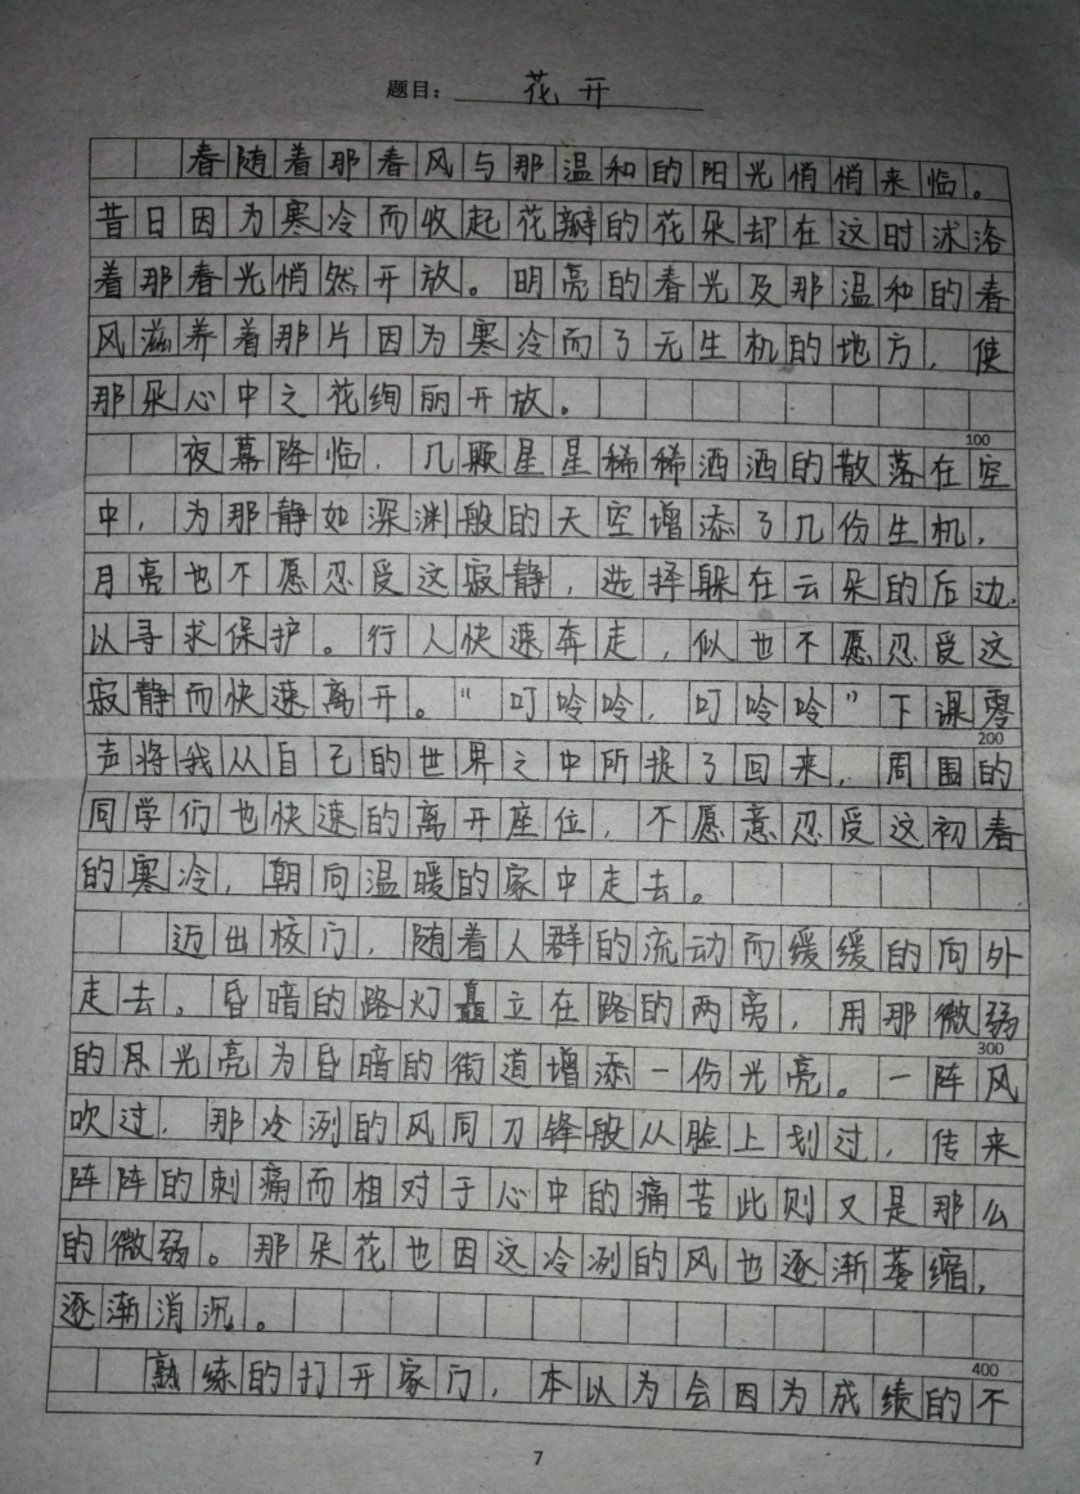 题目：花开
春随着那春风与那温和的阳光悄悄来临。
昔日因为寒冷而收起花瓣的花朵却在这时沭洛
着那春光悄然开放。明亮的春光及那温和的春
风滋养着那片因为寒冷而了无生机的地方，使
那朵心中之花绚丽开放。
100
夜幕降临，几颗星星稀稀洒洒的散落在空
中，为那静如深渊般的天空增添了几份生机，
月亮也不愿忍受这寂静，选择躲在云朵的后边.
以寻求保护。行人快速奔走，似也不愿忍受这
寂静而快速离开。“叮呤呤，叮呤呤”下课零
200
声将我从自己的世界之中所拢了回来，周围的
同学们也快速的离开座位，不愿意忍受这初春
的寒冷，朝向温暖的家中走去。
迈出校门，随着人群的流动而缓缓的向外
走去。昏暗的路灯矗立在路的两旁，用那微弱
300
的月光亮为昏暗的街道增添一份光亮。一阵风
吹过，那冷冽的风同刀锋般从脸上划过，传来
阵阵的刺痛而相对于心中的痛苦此则又是那么
的微弱。那朵花也因这冷冽的风也逐渐萎缩，
逐渐消沉。
400
熟练的打开家门，本以为会因为成绩的不
7